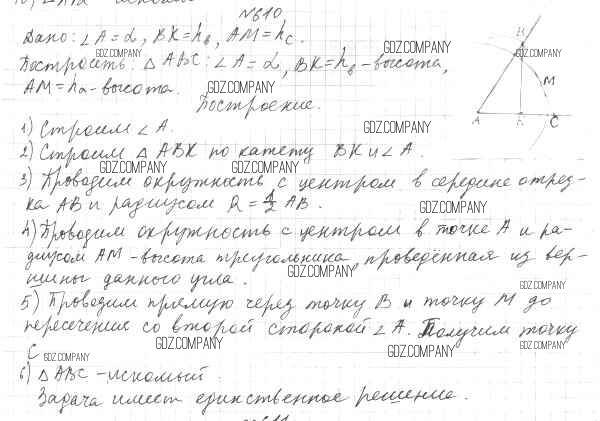 №610
Дано: ∠A = α, BK = h_b, AM = h_c.
GDZ.COMPANY
GDZ.COMPANY
GDZ.COMPANY
Построить: △ABC: ∠A = α, BK = h_b - высота,
AM = h_a - высота.
GDZ.COMPANY
Построение.
B
M
A
K
C
1) Строим ∠A.
GDZ.COMPANY
2) Строим △ABK по катету BK и ∠A.
GDZ.COMPANY
GDZ.COMPANY
3) Проводим окружность с центром в середине отрез-
ка AB и радиусом R = 1/2 AB.
GDZ.COMPANY
4) Проводим окружность с центром в точке A и ра-
диусом AM - высота треугольника, проведённая из вер-
шины данного угла.
GDZ.COMPANY
GDZ.COMPANY
5) Проводим прямую через точку B и точку M до
пересечения со второй стороной ∠A. Получим точку
C
GDZ.COMPANY
GDZ.COMPANY
GDZ.COMPANY
GDZ.COMPANY
6) △ABC - искомый.
Задача имеет единственное решение.